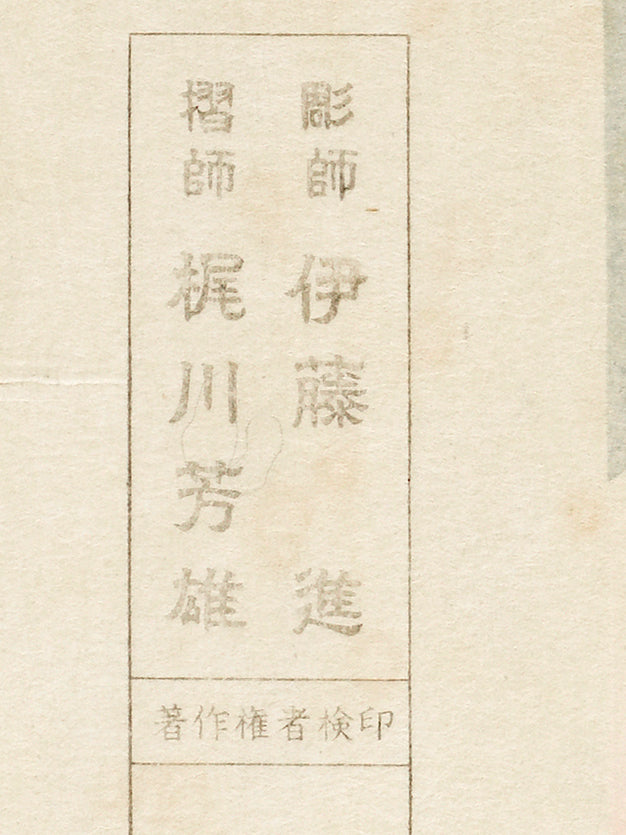 彫師 伊藤 進
摺師 梶川芳雄
著作権者検印